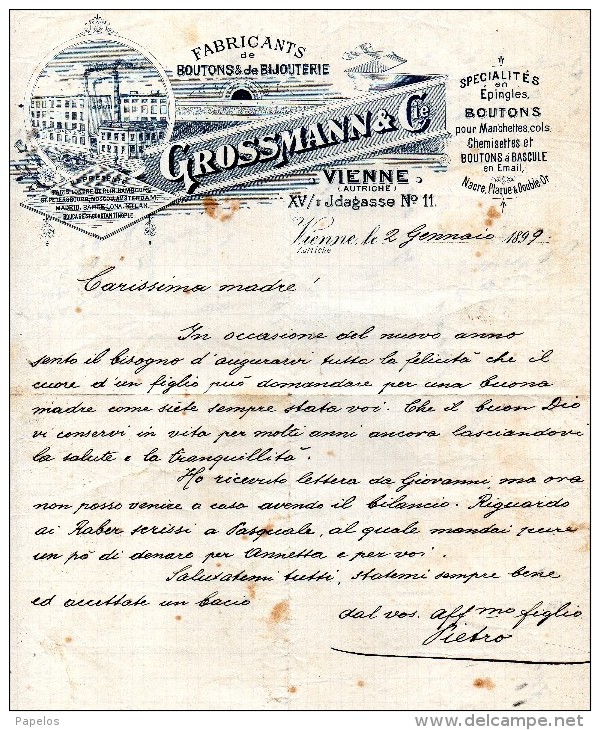 FABRICANTS
de
BOUTONS & de BIJOUTERIE
GROSSMANN & Cie
VIENNE
(AUTRICHE)
XV/1 Jdagasse No 11.
SPECIALITÉS
en
Épingles,
BOUTONS
pour Manchettes, cols,
Chemisettes et
BOUTONS à BASCULE
en Émail,
Nacre, Plaque & Double Or
PARIS LONDRE BERLIN HAMBOURG
ST. PETERSBOURG, MOSCOU, AMSTERDAM,
MADRID, BARCELONA, MILAN,
BOUCAREST CONSTANTINOPLE
Vienne, le 2 Gennaio 1899.
Autriche
Carissima madre!
In occasione del nuovo anno
sento il bisogno d'augurarvi tutta la felicità che il
cuore d'un figlio può domandare per una buona
madre come siete sempre stata voi. Che il buon Dio
vi conservi in vita per molti anni ancora lasciandovi
la salute e la tranquillità.
Ho ricevuto lettera da Giovanni, ma ora
non posso venire a casa avendo il bilancio. Riguardo
ai Raber scrissi a Pasquale, al quale mandai pure
un pò di denaro per Annetta e per voi.
Salutatemi tutti, statemi sempre bene
ed accettate un bacio
dal vos. affmo figlio
Pietro
Papelos
www.delcampe.net